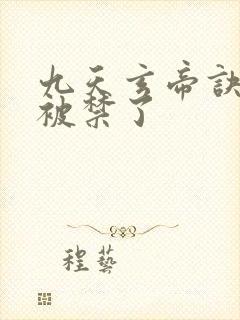 九天玄帝訣
被禁了
程藝